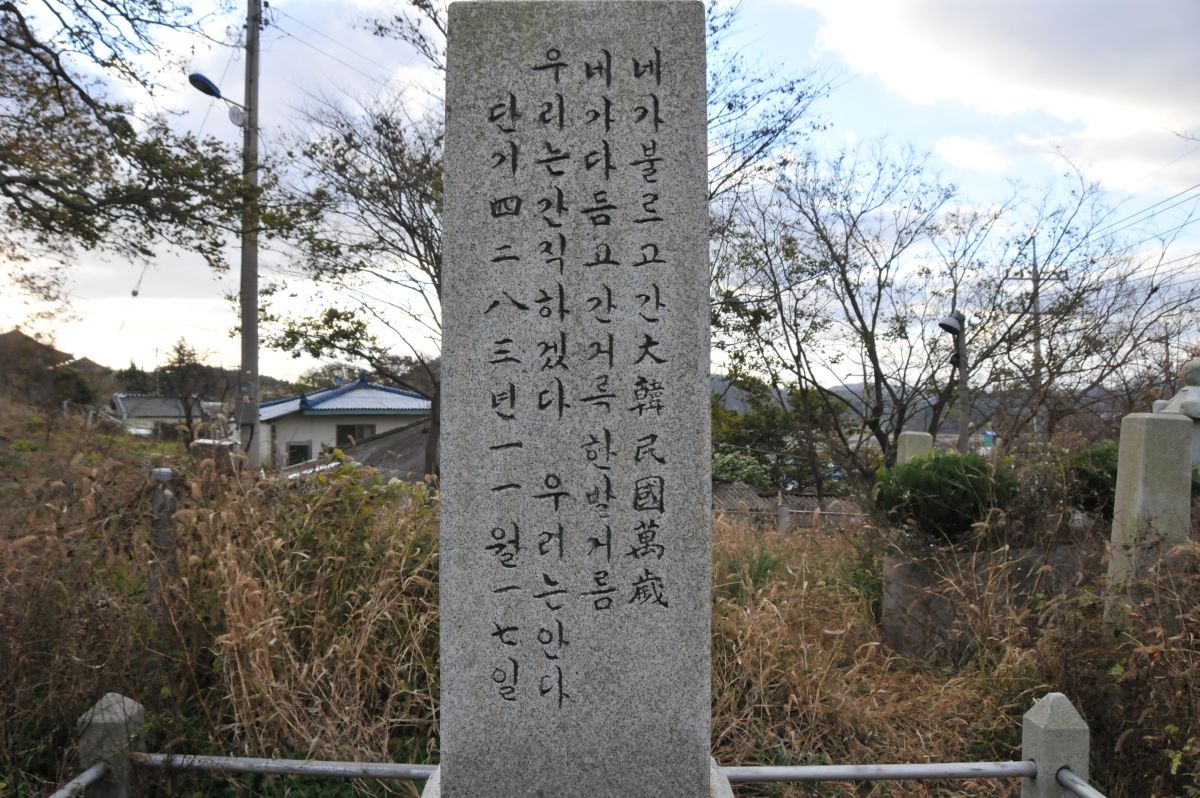 네가불르고간大韓民國萬歲
네가다듬고간거륵한발거름
우리는간직하겠다 우리는안다
단기四二八三년一一월一七일